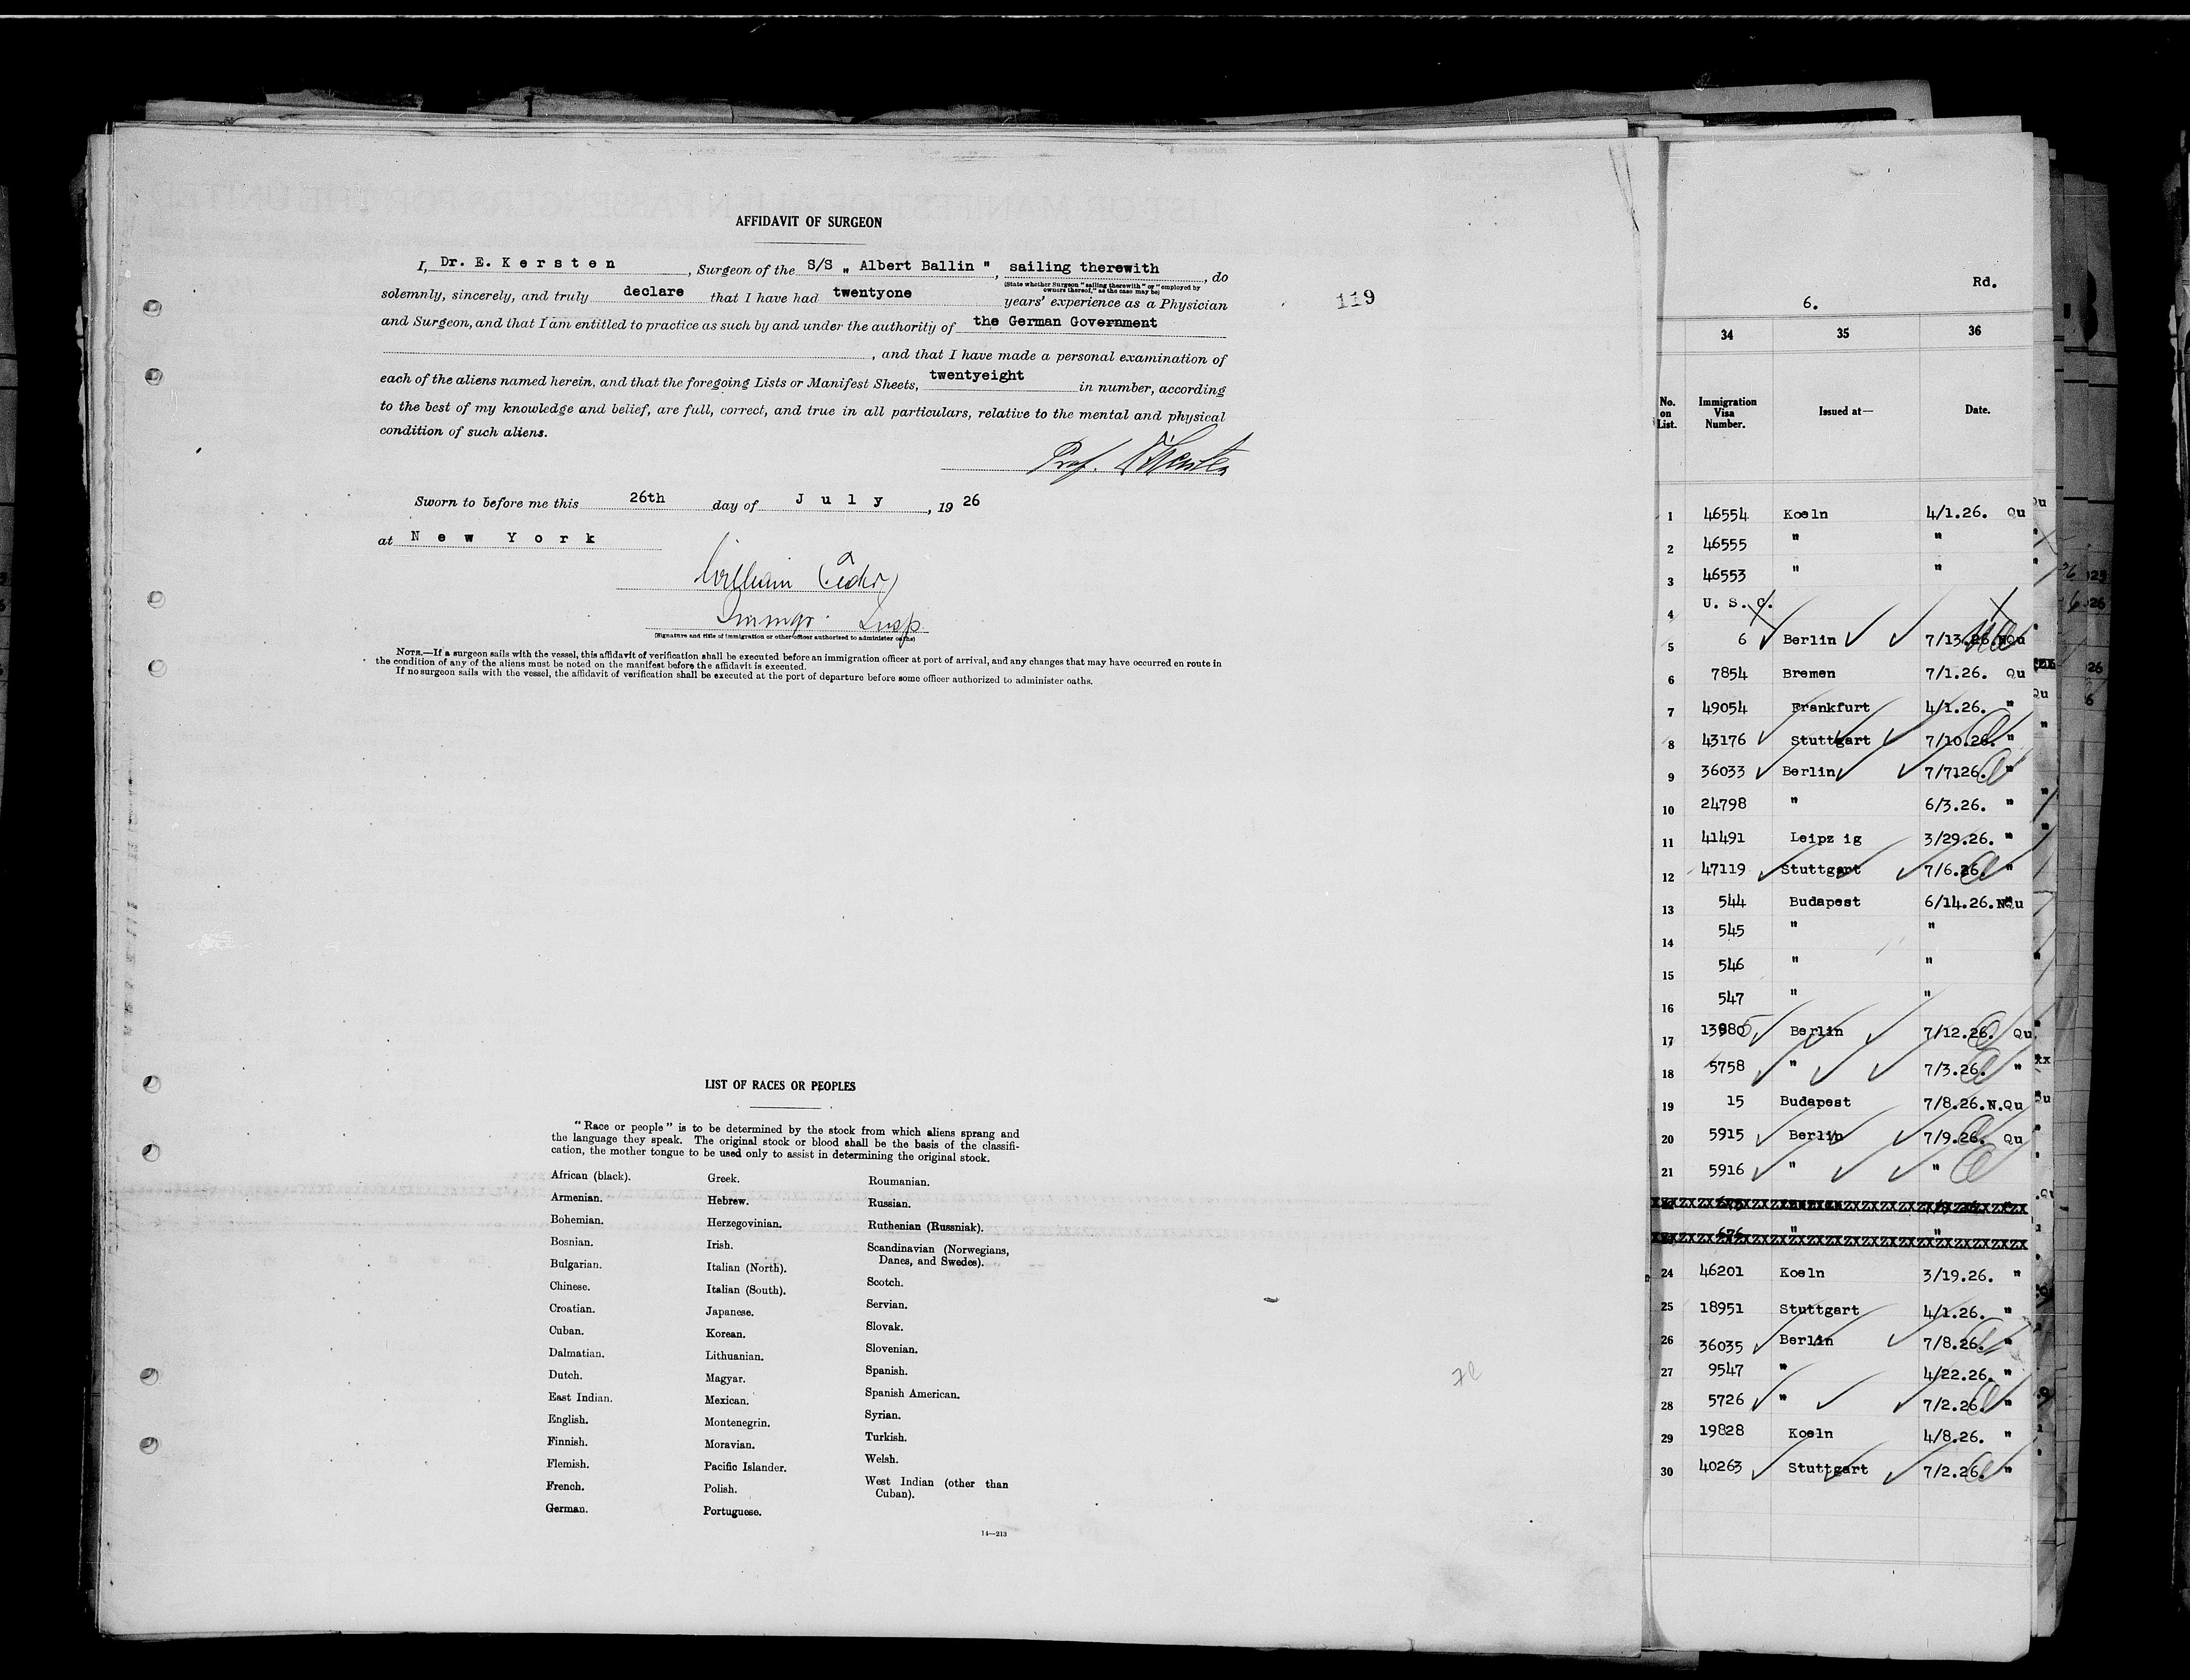 AFFIDAVIT OF SURGEON
I, Dr. E. K e r s t e n , Surgeon of the S/S „ Albert Ballin ", sailing therewith , do
(State whether Surgeon "sailing therewith" or "employed by owners thereof," as the case may be)
solemnly, sincerely, and truly declare that I have had twentyone years' experience as a Physician
and Surgeon, and that I am entitled to practice as such by and under the authority of the German Government
, and that I have made a personal examination of
each of the aliens named herein, and that the foregoing Lists or Manifest Sheets, twentyeight in number, according
to the best of my knowledge and belief, are full, correct, and true in all particulars, relative to the mental and physical
condition of such aliens.
Prof.
Sworn to before me this 26th day of J u l y , 19 26
at N e w Y o r k
William
Immgr. Insp.
(Signature and title of immigration or other officer authorized to administer oaths)
NOTE.—If a surgeon sails with the vessel, this affidavit of verification shall be executed before an immigration officer at port of arrival, and any changes that may have occurred en route in
the condition of any of the aliens must be noted on the manifest before the affidavit is executed.
If no surgeon sails with the vessel, the affidavit of verification shall be executed at the port of departure before some officer authorized to administer oaths.
119
LIST OF RACES OR PEOPLES
"Race or people" is to be determined by the stock from which aliens sprang and
the language they speak. The original stock or blood shall be the basis of the classifi-
cation, the mother tongue to be used only to assist in determining the original stock.
African (black).
Armenian.
Bohemian.
Bosnian.
Bulgarian.
Chinese.
Croatian.
Cuban.
Dalmatian.
Dutch.
East Indian.
English.
Finnish.
Flemish.
French.
German.
Greek.
Hebrew.
Herzegovinian.
Irish.
Italian (North).
Italian (South).
Japanese.
Korean.
Lithuanian.
Magyar.
Mexican.
Montenegrin.
Moravian.
Pacific Islander.
Polish.
Portuguese.
Roumanian.
Russian.
Ruthenian (Russniak).
Scandinavian (Norwegians,
Danes, and Swedes).
Scotch.
Servian.
Slovak.
Slovenian.
Spanish.
Spanish American.
Syrian.
Turkish.
Welsh.
West Indian (other than
Cuban).
14—213
Rd.
6.
34 35 36
No. on List. Immigration Visa Number. Issued at— Date.
1 46554 Koeln 4/1.26. Qu
2 46555 " "
3 46553 " "
4 U. S. C.
5 6 Berlin 7/13.26.NQu
6 7854 Bremen 7/1.26. Qu
7 49054 Frankfurt 4/1.26. "
8 43176 Stuttgart 7/10.26. "
9 36033 Berlin 7/7126. "
10 24798 " 6/3.26. "
11 41491 Leipz ig 3/29.26. "
12 47119 Stuttgart 7/6.26. "
13 544 Budapest 6/14.26.N.Qu
14 545 " "
15 546 " "
16 547 " "
17 Berlin 7/12.26. Qu
18 5758 " 7/3.26. "
19 15 Budapest 7/8.26.N.Qu
20 5915 Berlin 7/9.26. Qu
21 5916 " "
676 " "
24 46201 Koeln 3/19.26. "
25 18951 Stuttgart 4/1.26. "
26 36035 Berlin 7/8.26. "
27 9547 " 4/22.26. "
28 5726 " 7/2.26. "
29 19828 Koeln 4/8.26. "
30 40263 Stuttgart 7/2.26. "